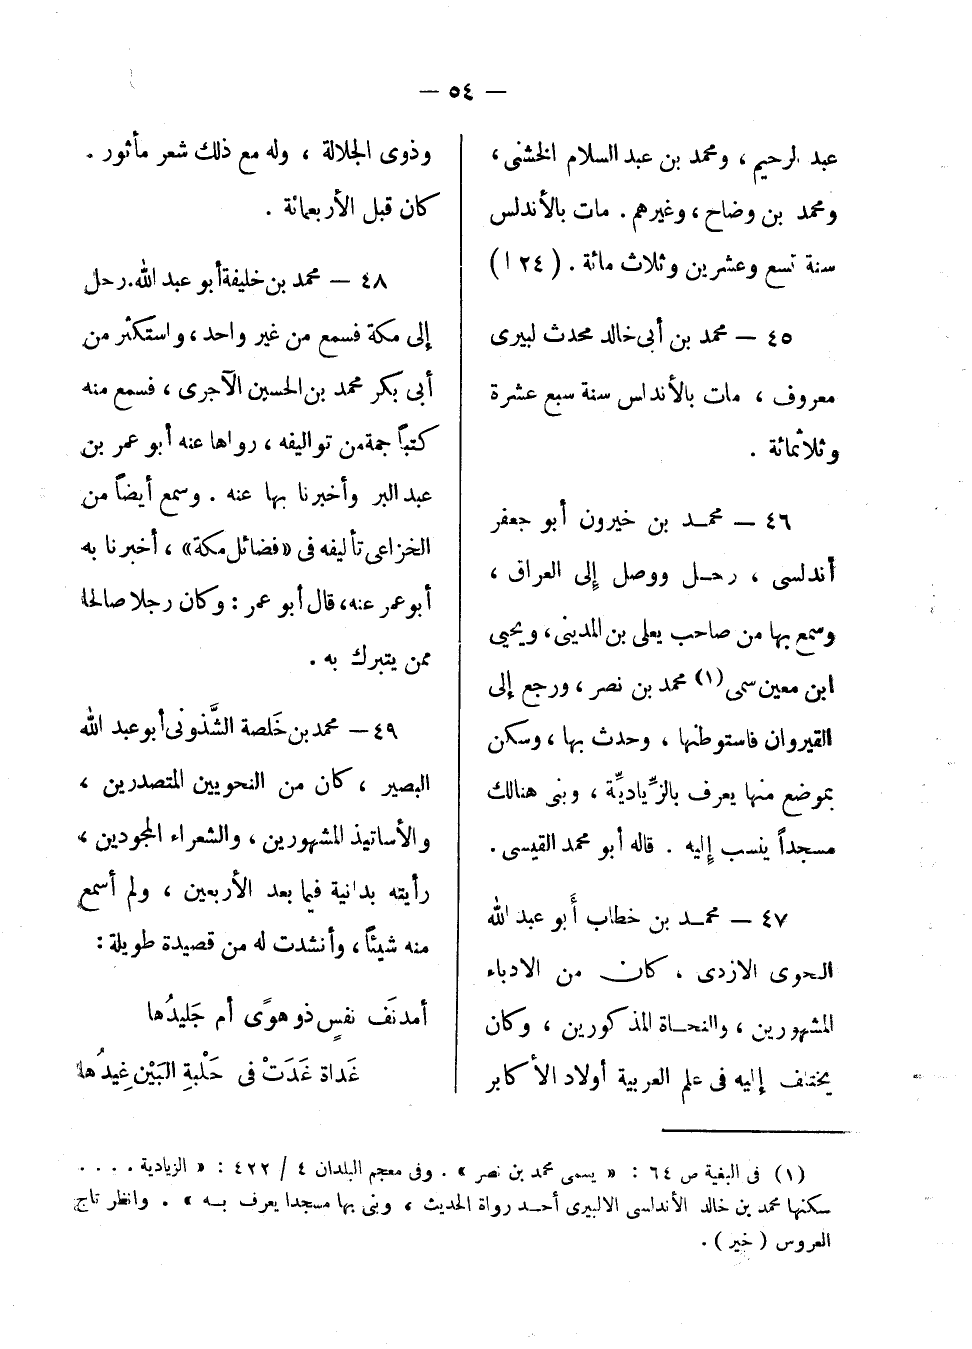 — ٥٤ —
عبد الرحيم ، ومحمد بن عبد السلام الخشنى ،
ومحمد بن وضاح ، وغيرهم . مات بالأندلس
سنة تسع وعشرين وثلاث مائة . ( ٢٤ ا )
٤٥ — محمد بن أبى خالد محدث لبيرى
معروف ، مات بالأندلس سنة سبع عشرة
وثلاثمائة .
٤٦ — محمد بن خيرون أبو جعفر
أندلسى ، رحل ووصل إلى العراق ،
وسمع بها من صاحب يعلى بن المدينى ، ويحيى
ابن معين سمى (١) محمد بن نصر ، ورجع إلى
القيروان فاستوطنها ، وحدث بها ، وسكن
بموضع منها يعرف بالزِّياديِّة ، وبنى هنالك
مسجداً ينسب إليه . قاله أبو محمد القيسى .
٤٧ — محمد بن خطاب أبو عبد الله
النحوى الازدى ، كان من الادباء
المشهورين ، والنحاة المذكورين ، وكان
يختلف إليه فى علم العربية أولاد الأكابر
وذوى الجلالة ، وله مع ذلك شعر مأثور .
كان قبل الأربعمائة .
٤٨ — محمد بن خليفة أبو عبد الله . رحل
إلى مكة فسمع من غير واحد ، واستكثر من
أبى بكر محمد بن الحسين الآجرى ، فسمع منه
كتباً جمة من تواليفه ، رواها عنه أبو عمر بن
عبد البر وأخبرنا بها عنه . وسمع أيضاً من
الخزاعى تأليفه فى «فضائل مكة» ، أخبرنا به
أبو عمر عنه ، قال أبو عمر : وكان رجلا صالحا
ممن يتبرك به .
٤٩ — محمد بن خَلصة الشَّذونى أبو عبد الله
البصير ، كان من النحويين المتصدرين ،
والأساتيذ المشهورين ، والشعراء المجودين ،
رأيته بدانية فيما بعد الأربعين ، ولم أسمع
منه شيئاً ، وأنشدت له من قصيدة طويلة :
أمدنَف نفسٍ ذو هوًى أم جَليدُها
غَداة غَدَتْ فى حَلْبةِ البَيْن غِيدُها
(١) فى البغية ص ٦٤ : « يسمى محمد بن نصر » . وفى معجم البلدان ٤ / ٤٢٢ : « الزيادية . . . .
سكنها محمد بن خالد الأندلسى الالبيرى أحد رواة الحديث ، وبنى بها مسجدا يعرف به » . وانظر تاج
العروس ( خير ) .